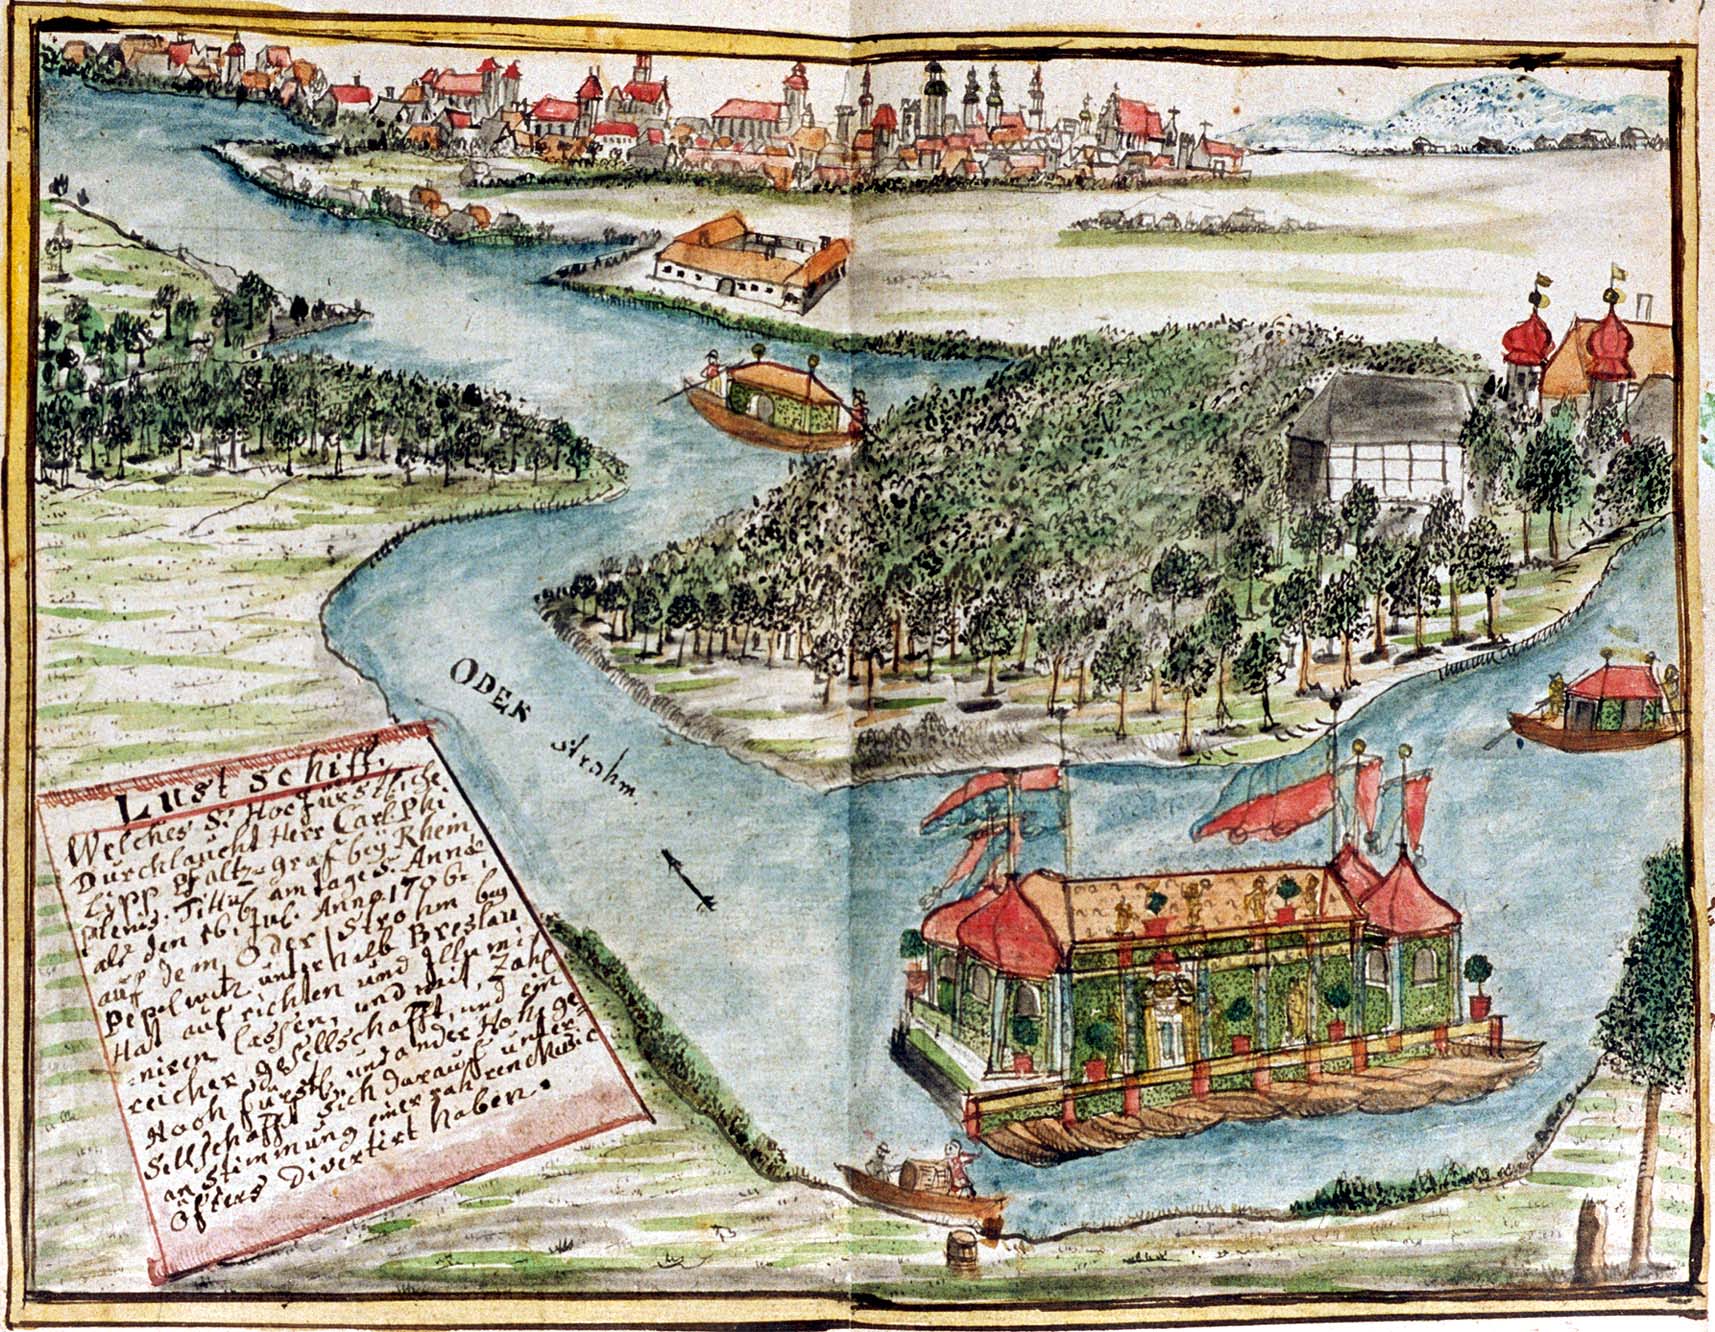 Lust Schiff,
Welches Sr. Hochfürstliche
Durchlaucht Herr Carl Phi
Lipp Pfaltz-graf beÿ Rhein
plenis. Titul. am tage S. Annæ
als den 26. Jul. Anno. 1706.
auf dem Oder Strohm beÿ
Pepelwitz unterhalb Breslau
Hat auf richten und Illumi
niren lassen, und mit Zahl
reicher gesellschafft, und ein
Hoch fürstl. und ander Hohe ge=
sellschafft sich darauff unter
an Stimmung einer raren Music
öfters divertirt haben.
ODER Strohm.